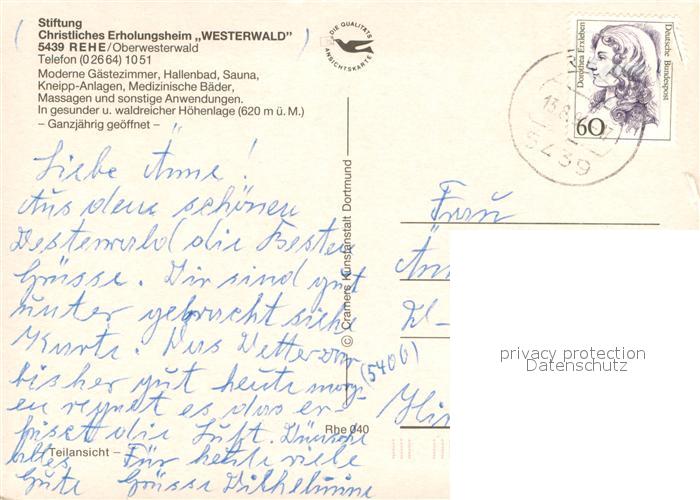 Stiftung
Christliches Erholungsheim „WESTERWALD"
5439 REHE/Oberwesterwald
Telefon (0 26 64) 10 51
Moderne Gästezimmer, Hallenbad, Sauna,
Kneipp-Anlagen, Medizinische Bäder,
Massagen und sonstige Anwendungen.
In gesunder u. waldreicher Höhenlage (620 m ü. M.)
– Ganzjährig geöffnet –
DIE QUALITÄTS
ANSICHTSKARTE
Dorothea Erxleben
Deutsche Bundespost
60
5439
Liebe Änne!
Aus dem schönen
Westerwald die Besten
Grüsse. Wir sind gut
unter gebracht siehe
Karte. Das Wetter war
bisher gut heute morg-
en regnet es das er-
friset die Luft. Wünsche
alles
Gute
Für heute viele
Grüsse Wilhelmine
Teilansicht –
© Cramers Kunstanstalt Dortmund
Rhe 040
(5400)
Frau
Än
privacy protection
Datenschutz